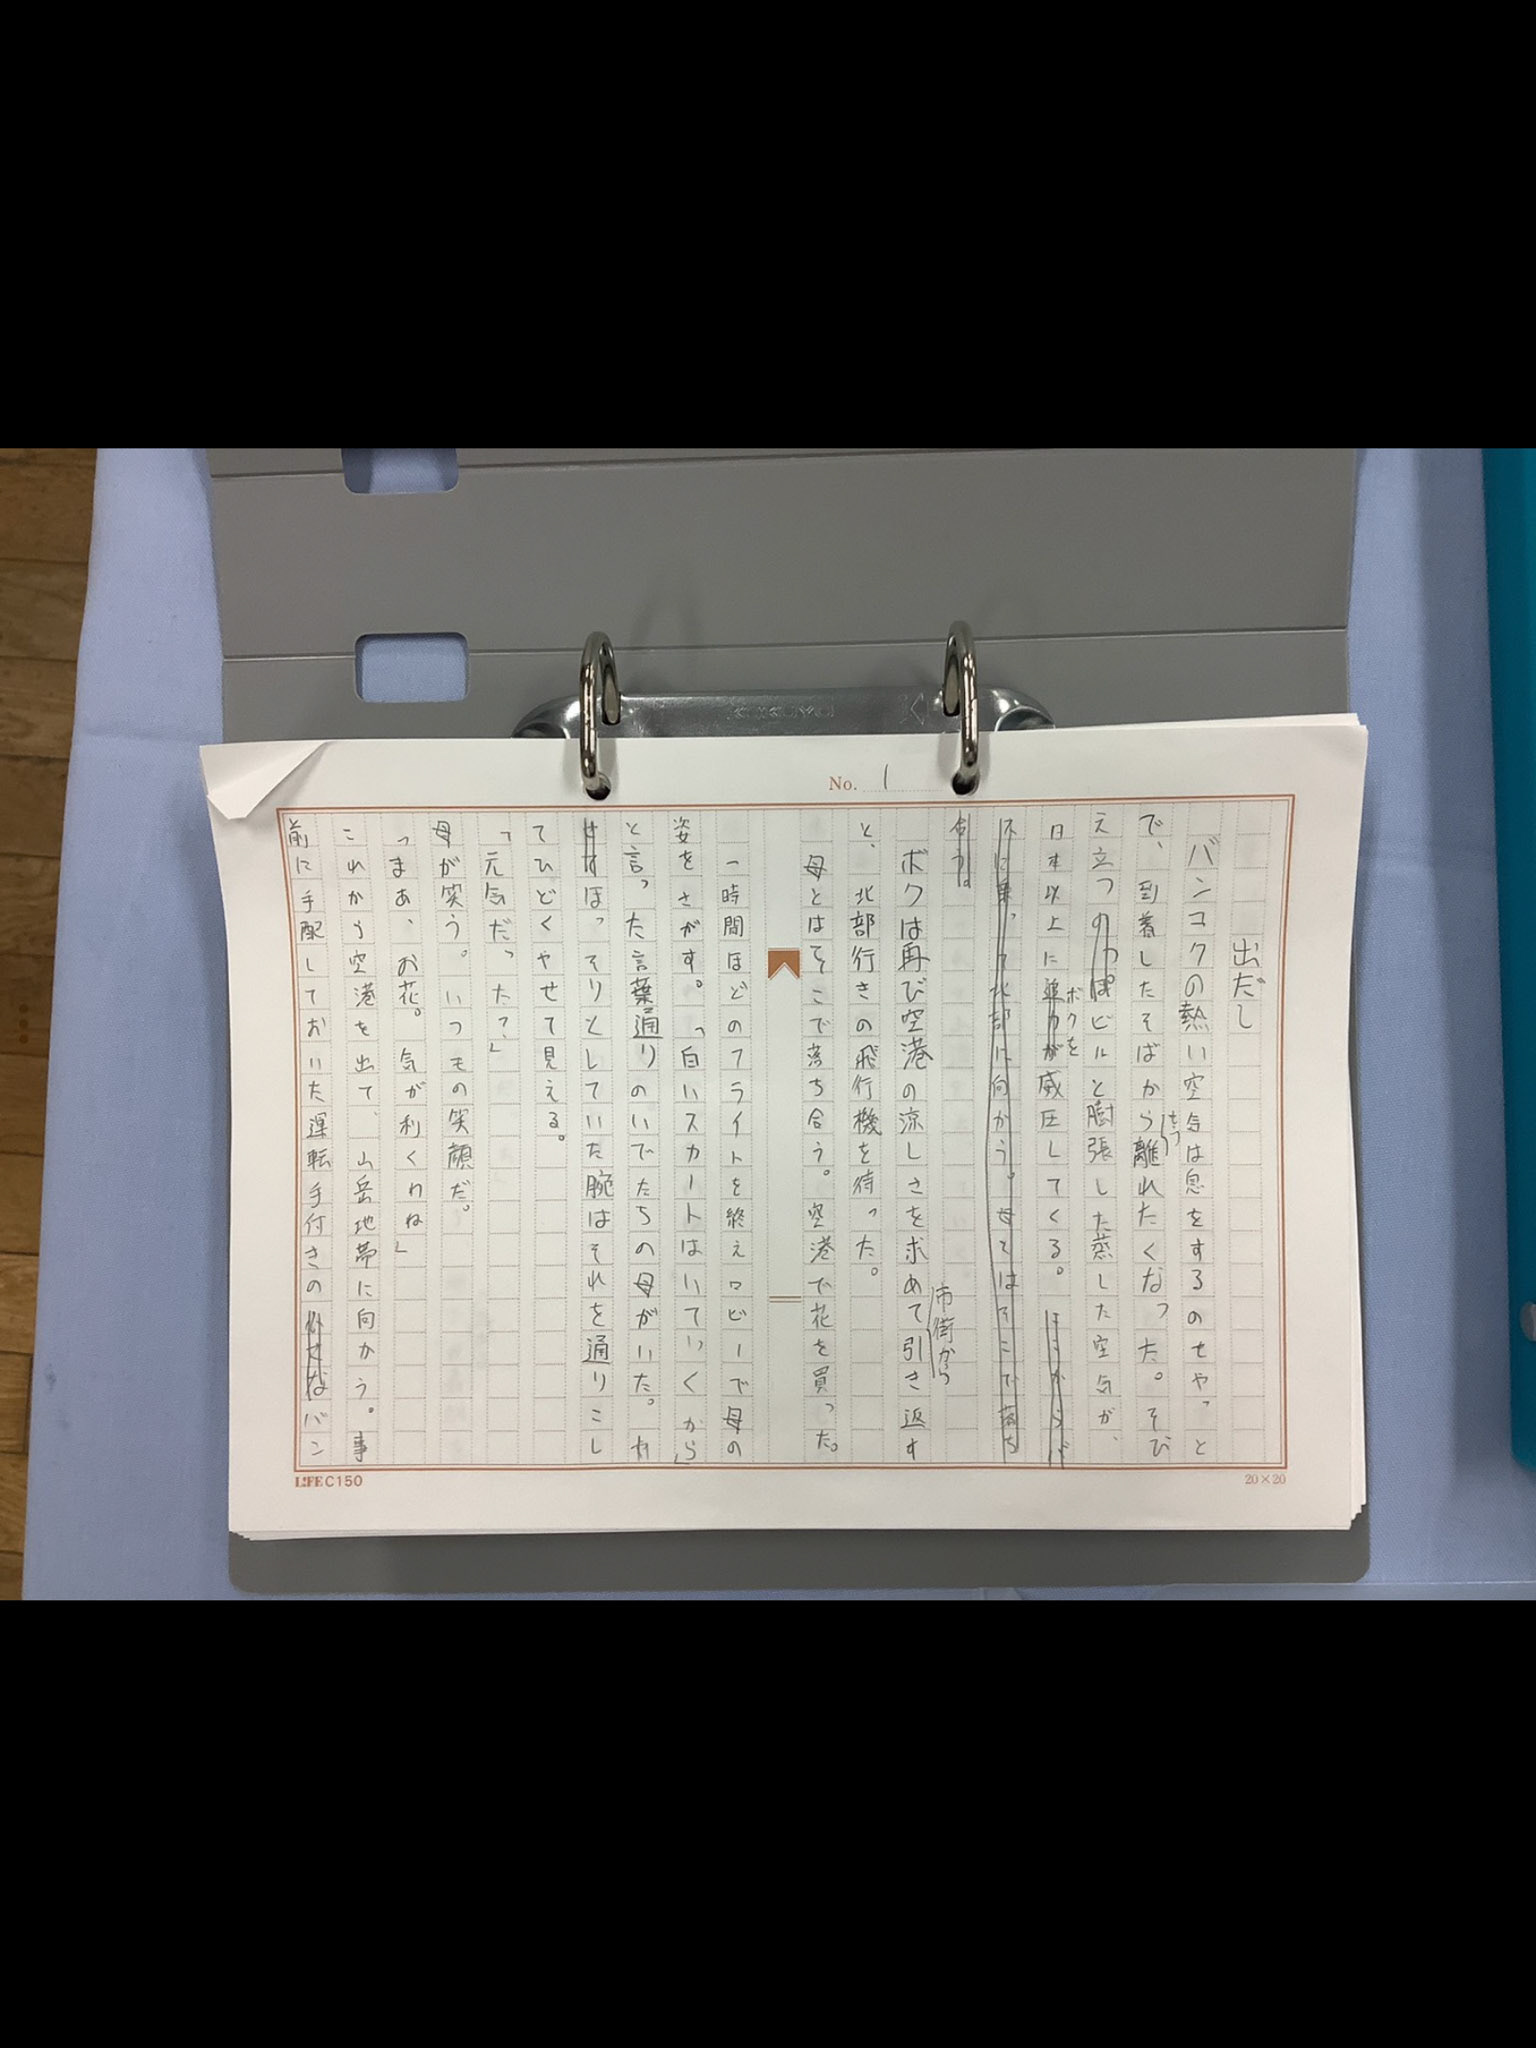 No. 1
出だし
バンコクの熱い空気は息をするのもやっと
で、到着したそばから離れたくなった。そび
をつ
え立つのっぽビルと膨張した蒸した空気が、
ボクを
日本以上に迫力が威圧してくる。ここからバ
スに乗って北部に向かう。母とはそこで落ち
合う。
市街から
ボクは再び空港の涼しさを求めて引き返す
と、北部行きの飛行機を待った。
母とはそこで落ち合う。空港で花を買った。
一時間ほどのフライトを終えロビーで母の
姿をさがす。「白いスカートはいていくから」
と言った言葉通りのいでたちの母がいた。
ほっそりとしていた腕はそれを通りこし
てひどくやせて見える。
「元気だった？」
母が笑う。いつもの笑顔だ。
「まあ、お花。気が利くわね」
これから空港を出て、山岳地帯に向かう。事
前に手配しておいた運転手付きのバン
LIFE C150
20×20